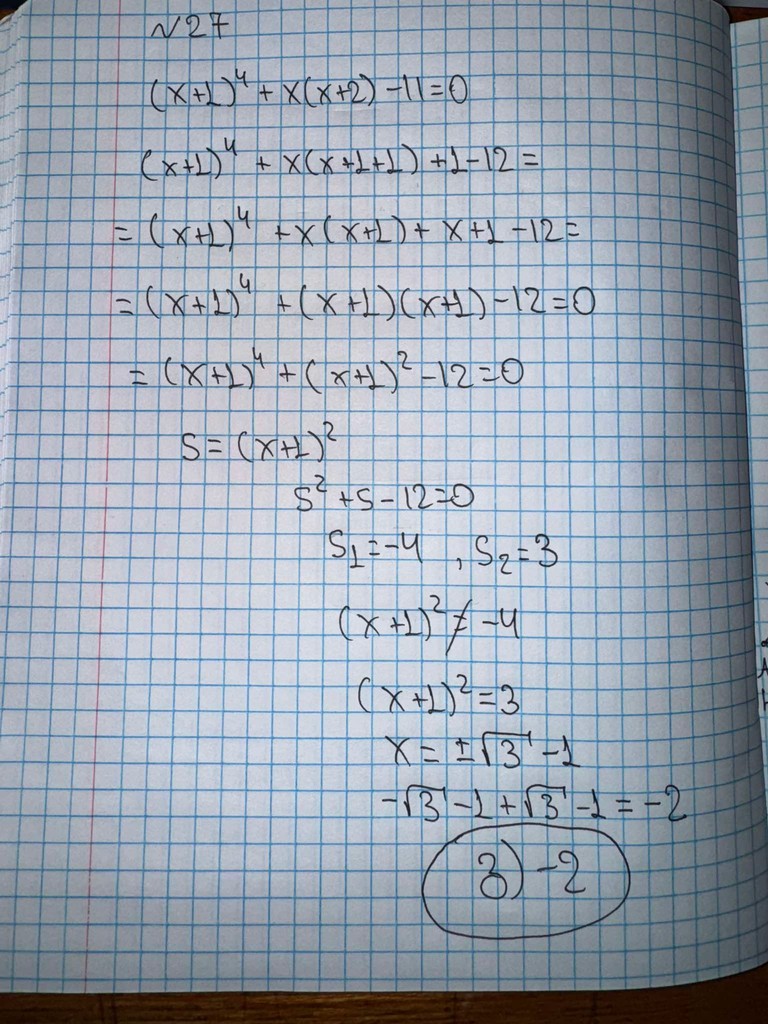 №27
(x+1)⁴ + x(x+2) -11=0
(x+1)⁴ + x(x+1+1) +1-12 =
= (x+1)⁴ +x(x+1)+ x+1-12=
=(x+1)⁴ +(x+1)(x+1)-12=0
= (x+1)⁴+(x+1)²-12=0
S=(x+1)²
S²+S-12=0
S₁=-4 , S₂=3
(x+1)²≠-4
(x+1)²=3
x= ±√3 -1
-√3 -1+√3 -1 = -2
3) -2